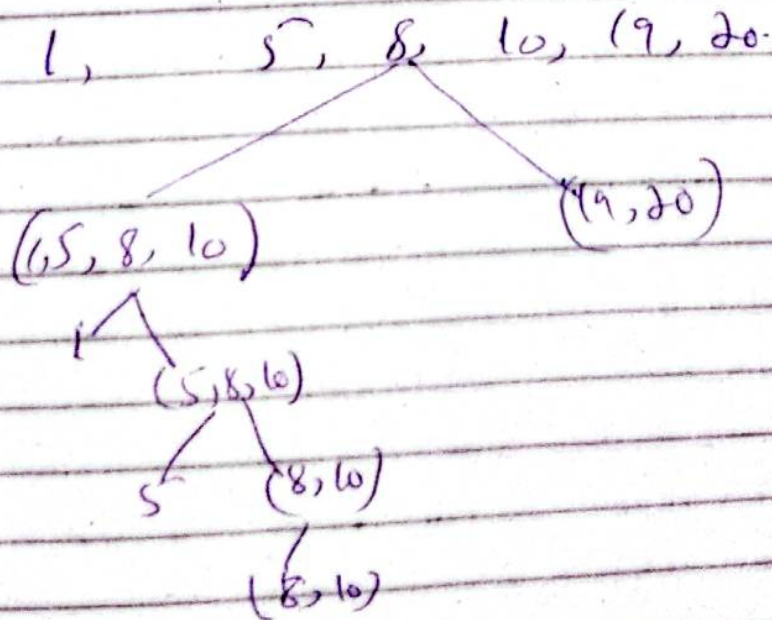 1, 5, 8, 10, 19, 20.
(1,5, 8, 10) (19, 20)
1
(5, 8, 10)
5 (8, 10)
(8, 10)